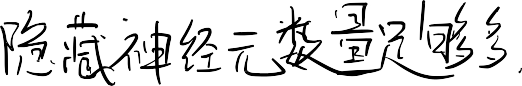 隐藏神经元数量足够多.